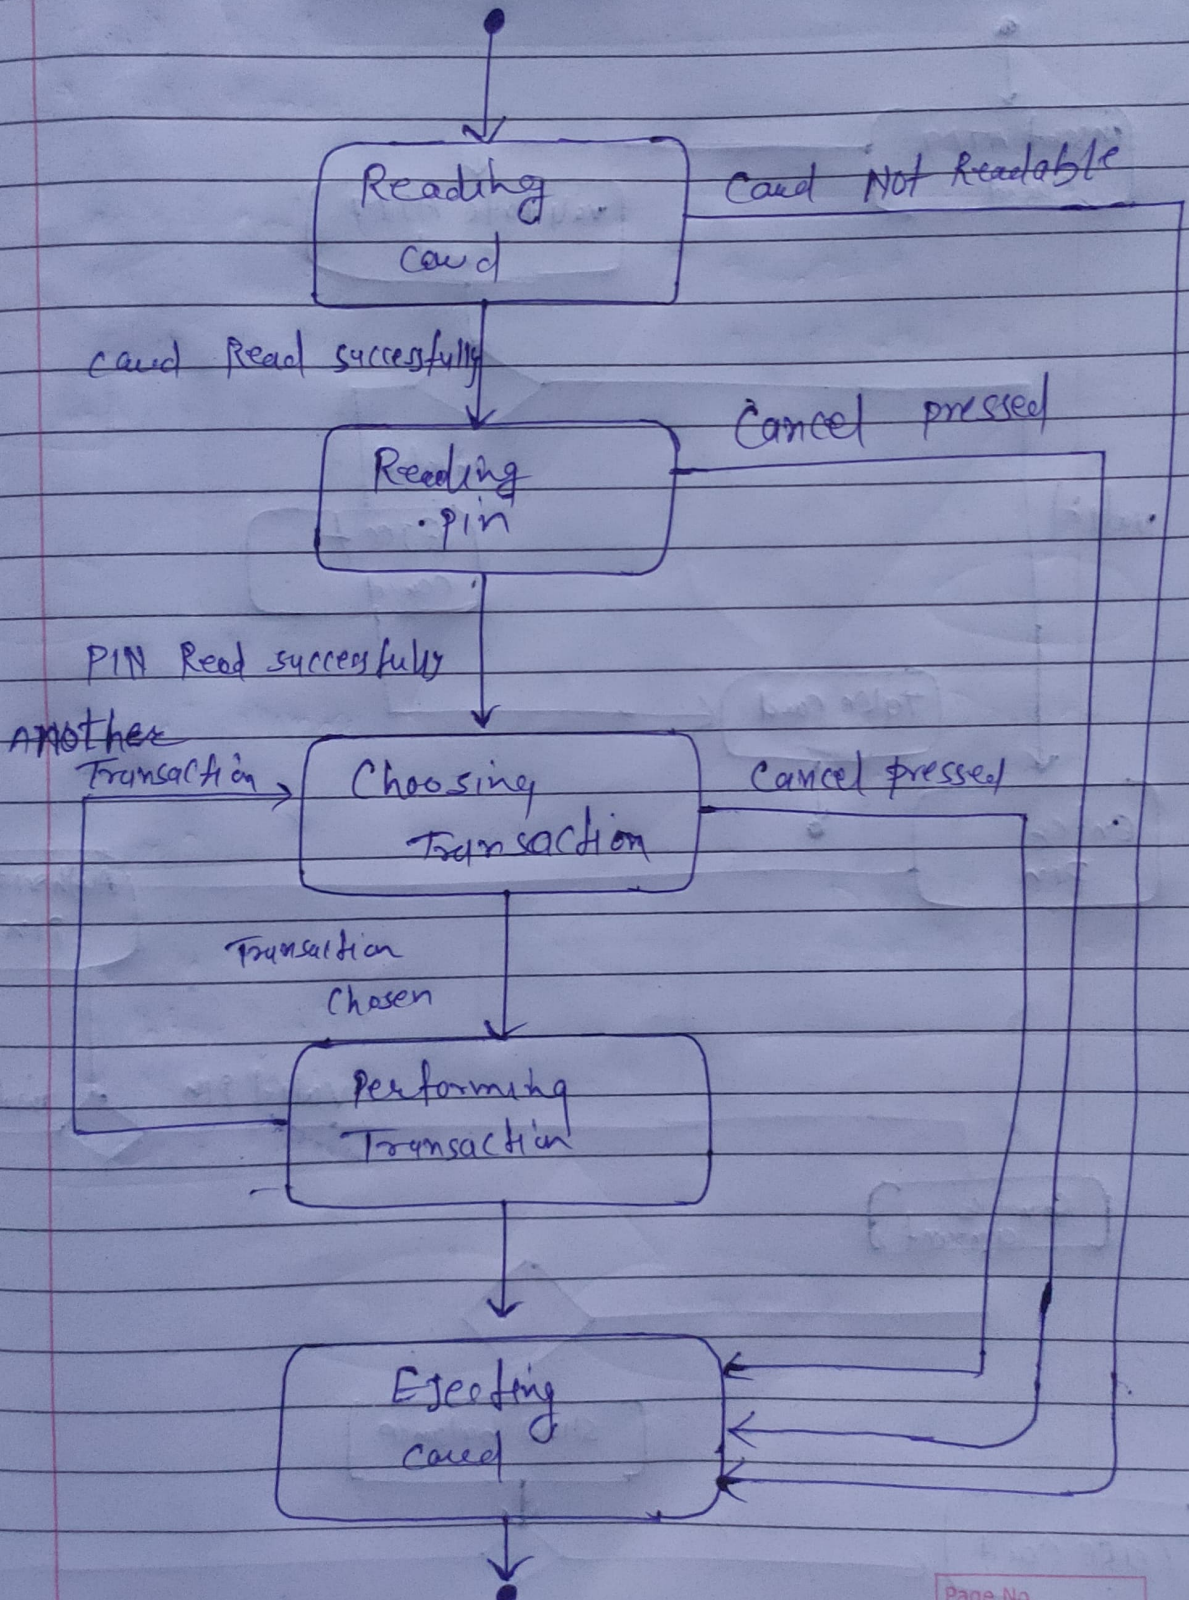 Reading
Card
Card Not Readable
Card Read successfully
Reading
Pin
Cancel pressed
PIN Read successfully
Another
Transaction
Choosing
Transaction
Cancel pressed
Transaction
Chosen
Performing
Transaction
Ejecting
Card
Page No